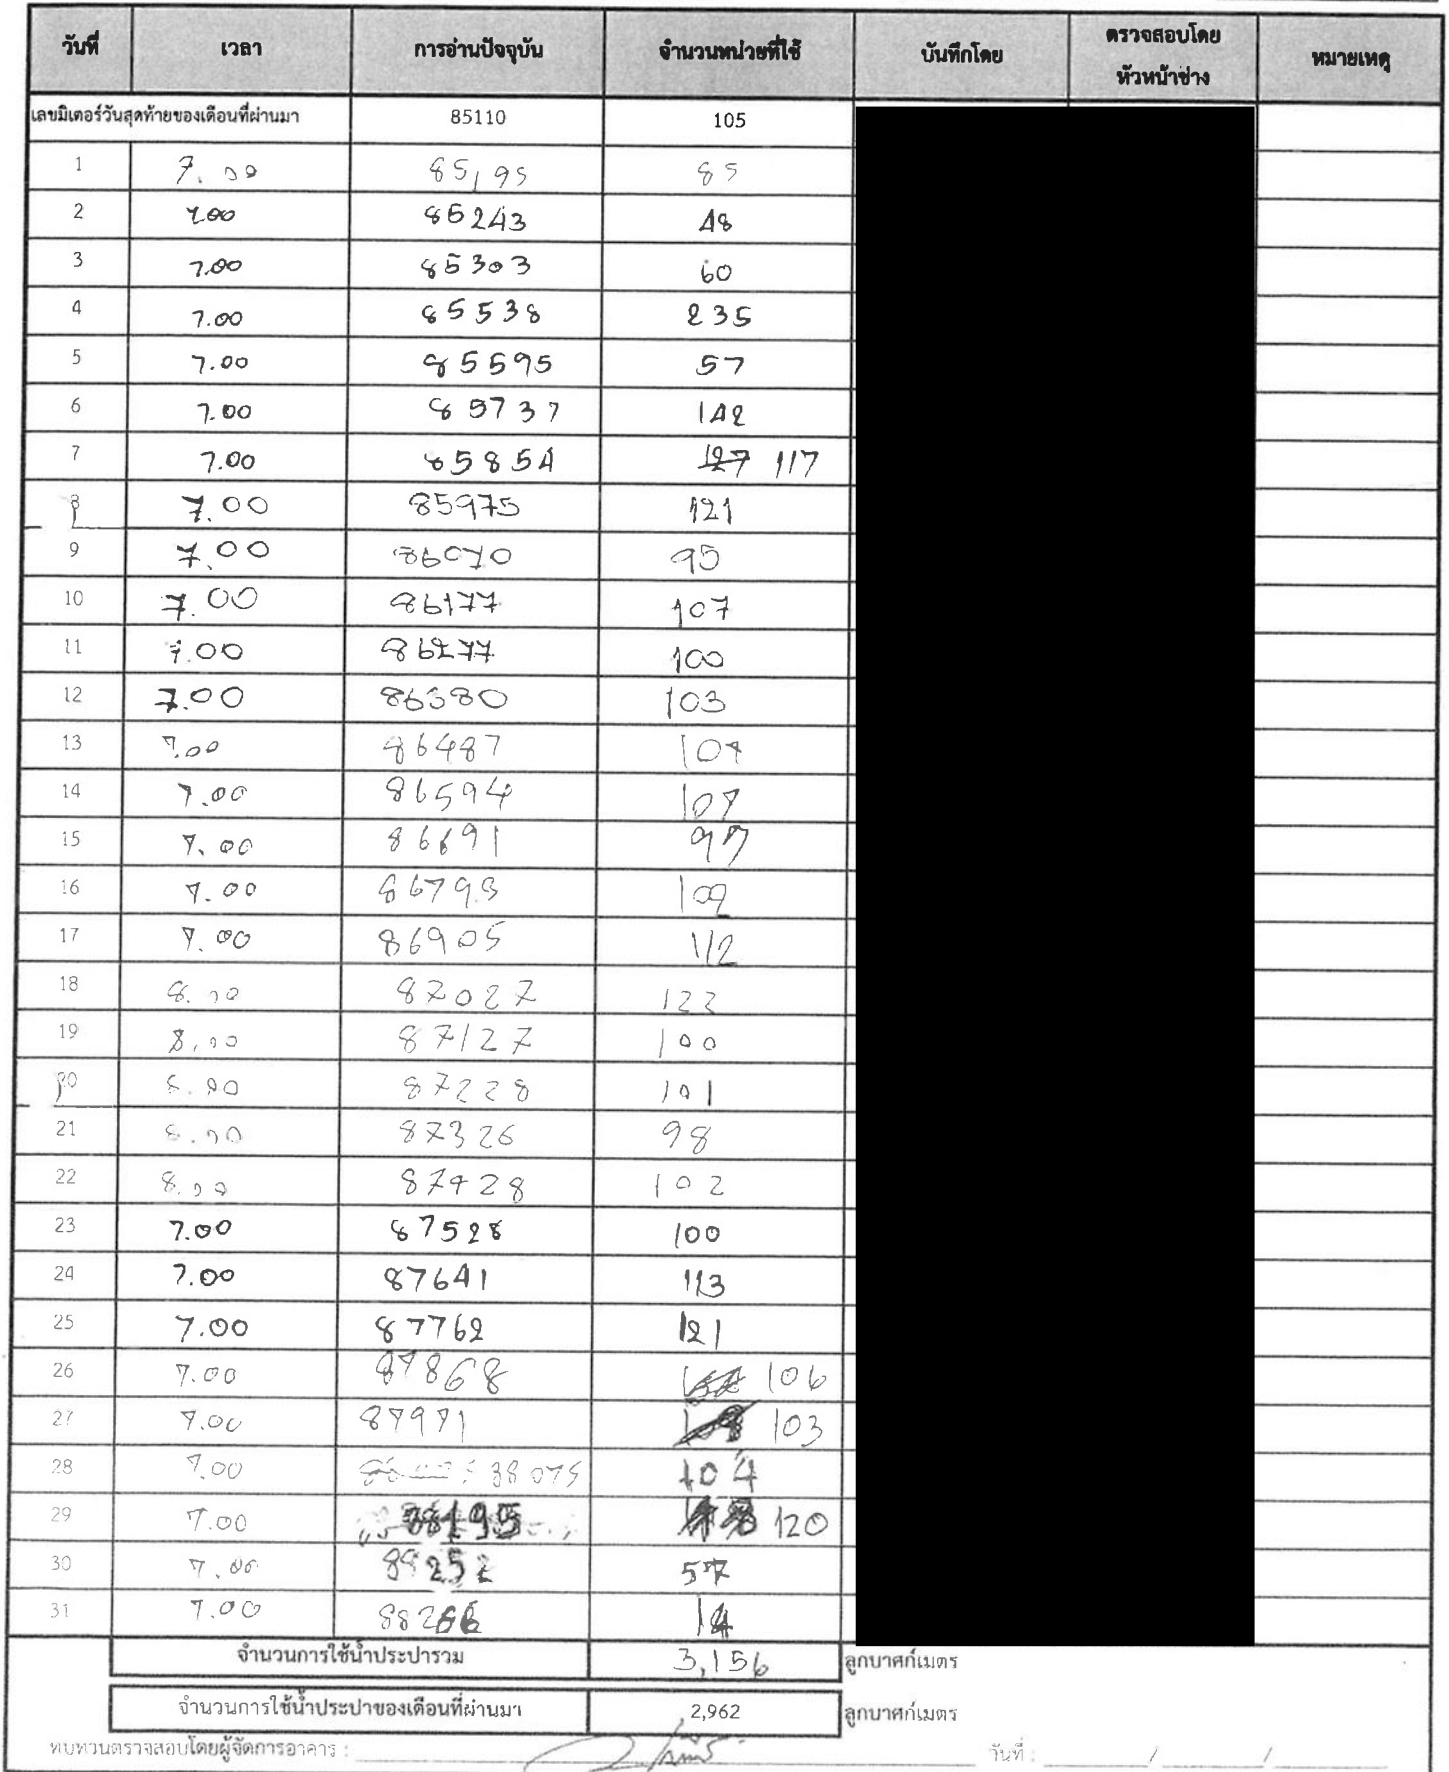 วันที่ เวลา การอ่านปัจจุบัน จำนวนหน่วยที่ใช้ บันทึกโดย ตรวจสอบโดย หัวหน้าช่าง หมายเหตุ
เลขมิเตอร์วันสุดท้ายของเดือนที่ผ่านมา 85110 105
1 7.00 85195 85
2 7.00 85243 48
3 7.00 85303 60
4 7.00 85538 235
5 7.00 85595 57
6 7.00 85737 142
7 7.00 85854 127 117
8 7.00 85975 121
9 7.00 86070 95
10 7.00 86177 107
11 7.00 86277 100
12 7.00 86380 103
13 7.00 86487 107
14 7.00 86594 107
15 7.00 86691 97
16 7.00 86793 102
17 7.00 86905 112
18 8.00 87027 122
19 8.00 87127 100
20 8.00 87228 101
21 8.00 87326 98
22 8.00 87428 102
23 7.00 87528 100
24 7.00 87641 113
25 7.00 87762 121
26 7.00 87868 106
27 7.00 87971 103
28 7.00 88075 104
29 7.00 88195 120
30 7.00 88252 57
31 7.00 88266 14
จำนวนการใช้น้ำประปารวม 3,156 ลูกบาศก์เมตร
จำนวนการใช้น้ำประปาของเดือนที่ผ่านมา 2,962 ลูกบาศก์เมตร
ทบทวนตรวจสอบโดยผู้จัดการอาคาร : วันที่ : / /